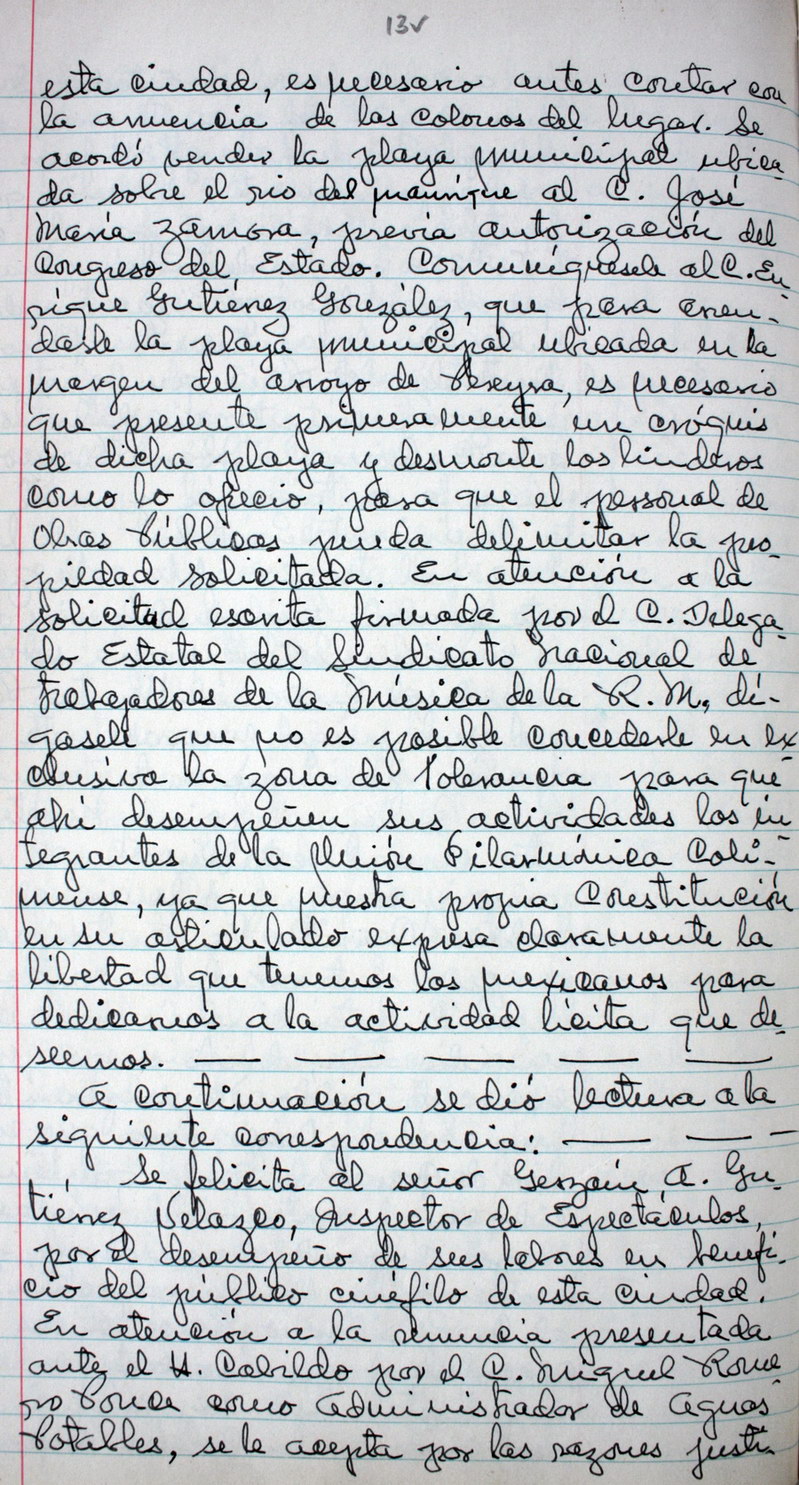 13v
esta ciudad, es necesario antes contar con
la anuencia de los colonos del lugar. Se
acordó vender la playa municipal ubica-
da sobre el rio del manrique al C. José
María Zamora, previa autorización del
Congreso del Estado. Comuníquesele al C. En
rique Gutiérrez González, que para arren-
darle la playa municipal ubicada en la
margen del arroyo de Pereyra, es necesario
que presente primeramente un cróquis
de dicha playa y desmonte los linderos
como lo ofreció, para que el personal de
Obras Públicas pueda delimitar la pro-
piedad solicitada. En atención a la
solicitud escrita firmada por el C. Delega-
do Estatal del Sindicato Nacional de
Trabajadores de la Música de la R. M., dí-
gasele que no es posible concederle en ex-
clusiva la zona de Tolerancia para que
ahí desempeñen sus actividades los in
tegrantes de la Unión Filarmónica Coli-
mense, ya que nuestra propia Constitución
en su articulado expresa claramente la
libertad que tenemos los mexicanos para
dedicarnos a la actividad lícita que de-
seemos. — — — — —
A continuación se dió lectura a la
siguiente correspondencia: — — —
Se felicita al señor Gerzaín A. Gu-
tiérrez Velazco, Inspector de Espectáculos,
por el desempeño de sus labores en benefi-
cio del público cinéfilo de esta ciudad.
En atención a la renuncia presentada
ante el H. Cabildo por el C. Miguel Rome
ro Ponce como Administrador de Aguas
Potables, se le acepta por las razones justi-